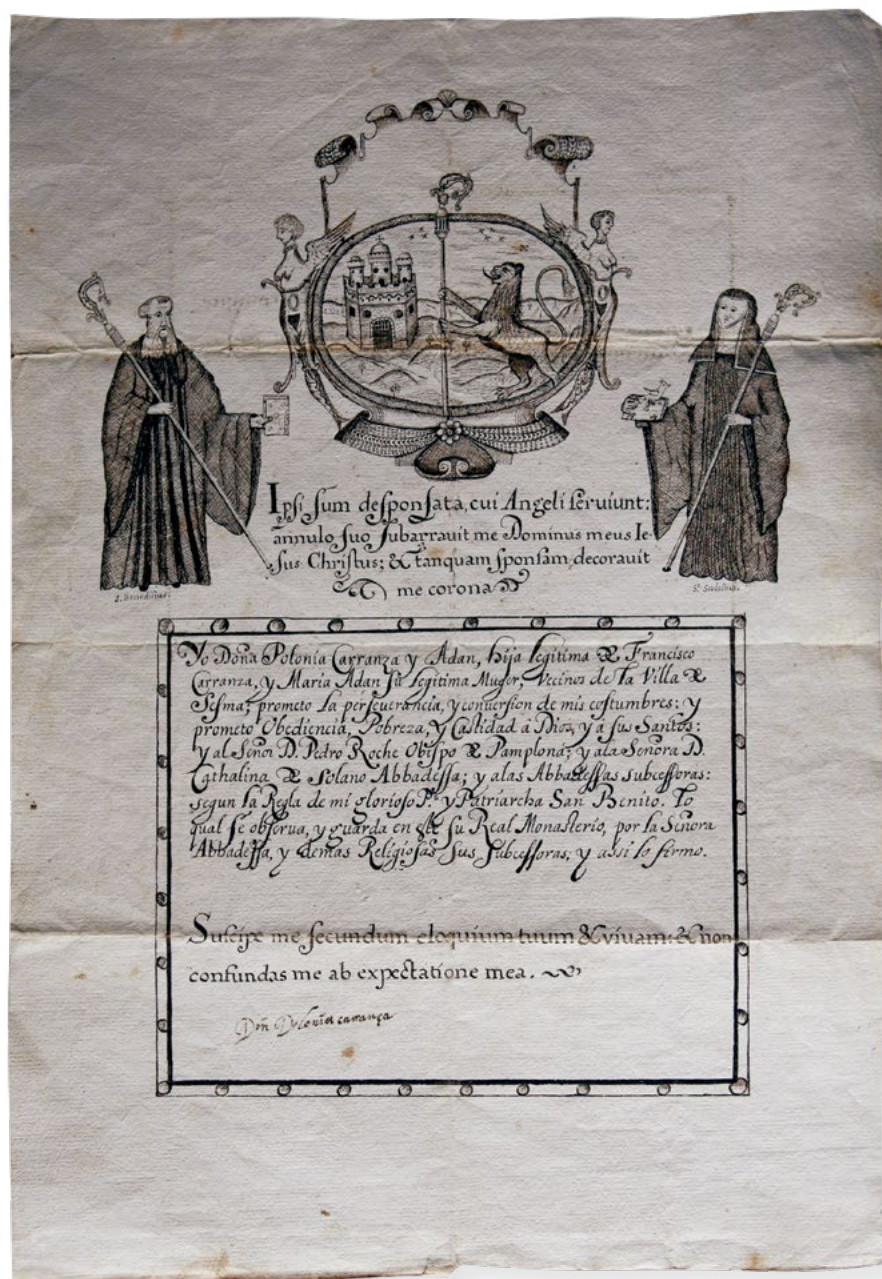 Ipsi sum desponsata, cui Angeli serviunt:
annulo suo subarravit me Dominus meus Ie-
sus Christus; & tanquam sponsam, decoravit
me corona
S. Benedictus.
Yo Doña Polonia Carranza y Adan, hija legitima de Francisco
Carranza, y Maria Adan su legitima Muger, Vecinos de la Villa de
Sesma; prometo la perseverancia, y conversion de mis costumbres: y
prometo Obediencia, Pobreza, y Castidad à Dios, y à sus Santos:
y al Señor D. Pedro Roche Obispo de Pamplona; y ala Señora D.
Cathalina de Solano Abbadessa; y alas Abbadessas subcessoras:
segun la Regla de mi glorioso P.e y Patriarcha San Benito. Lo
qual se observa, y guarda en este su Real Monasterio, por la Señora
Abbadessa, y demas Religiosas sus subcessoras; y assi lo firmo.
Suscipe me secundum eloquium tuum & vivam: & non
confundas me ab expectatione mea.
Doñ Polonia carança